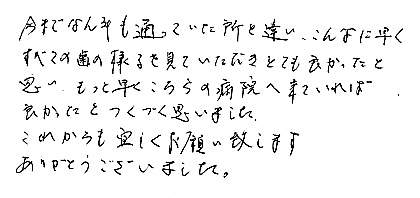 今までなん年も通っていた所と違い、こんなに早く
すべての歯の様子を見ていただきとても良かったと
思い、もっと早くこちらの病院へ来ていれば
良かったとつくづく思いました。
これからも宜しくお願い致します
ありがとうございました。